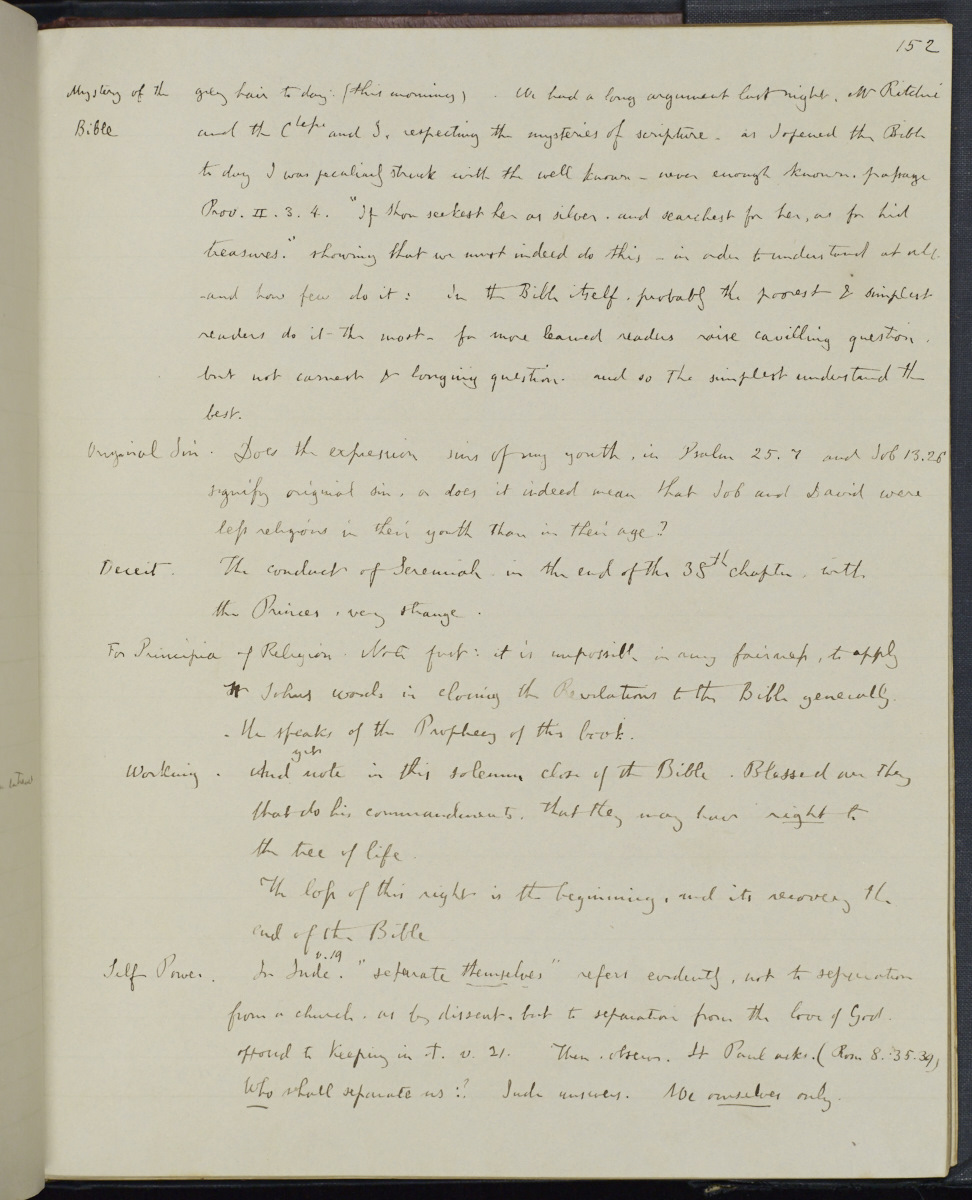 152
Mystery of the grey hair to day: (this morning). We had a long argument last night, Mr Ritchie
Bible and the Ctesse and I, respecting the mysteries of scripture - as I opened the Bible
to day I was peculiarly struck with the well known - never enough known. passage
Prov. II. 3. 4. "If thou seekest her as silver. and searchest for her, as for hid
treasures." showing that we must indeed do this - in order to understand at all.
-and how few do it: In the Bible itself. probably the poorest & simplest
readers do it the most - for more learned readers raise cavilling question.
but not earnest & longing question. and so the simplest understand the
best.
Original Sin. Does the expression sins of my youth, in Psalm 25. 7 and Job 13.26
signify original sin, or does it indeed mean that Job and David were
less religious in their youth than in their age?
Deceit. The conduct of Jeremiah in the end of the 38th chapter. with
the Princes, very strange.
For Principia of Religion. Note first: it is impossible in any fairness, to apply
St Johns words in closing the Revelations to the Bible generally.
- He speaks of the Prophecy of this book.
Working. And yet note in this solemn close of the Bible. Blessed are they
that do his commandments, that they may have right to
the tree of life.
The loss of this right is the beginning, and its recovery the
end of the Bible
Self Power. In Jude. v.19 "separate themselves" refers evidently, not to separation
from a church. as by dissent. but to separation from the love of God.
opposed to Keeping in it. v. 21. Then. observe. St Paul asks. (Rom 8. 35.39)
Who shall separate us:? Jude answers. We ourselves only.